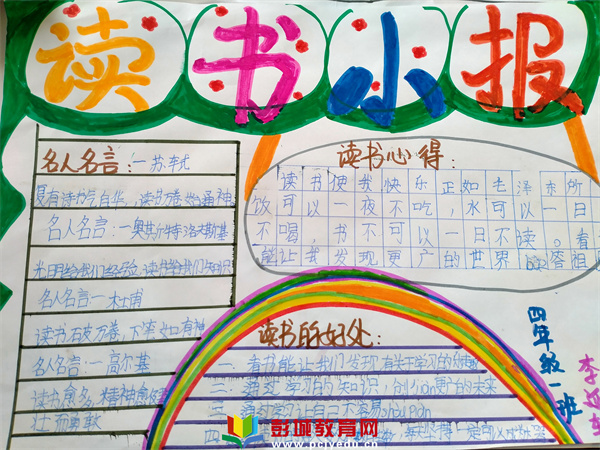 读书小报
名人名言：一苏轼
腹有诗书气自华，读书万卷始通神
名人名言：一奥其尔特洛夫斯基
光日月给我们经验，读书给我们知识
名人名言一杜甫
读书破万卷，下笔如有神
名人名言：一高尔基
读书愈多，精神愈健
壮而勇敢
读书心得：
读书使我快乐正如毛泽东所
饭可以一夜不吃，水可以一日
不喝，书不可以一日不读。看
能让我发现更广的世界
读书的好处：
一：看书能让我们发现有关于学习的
二：通过学习的知识，创造更广的未来
三：通过学习让自己不容易
四
四年级一班
彭城教育网
www.pcjyedu.cn